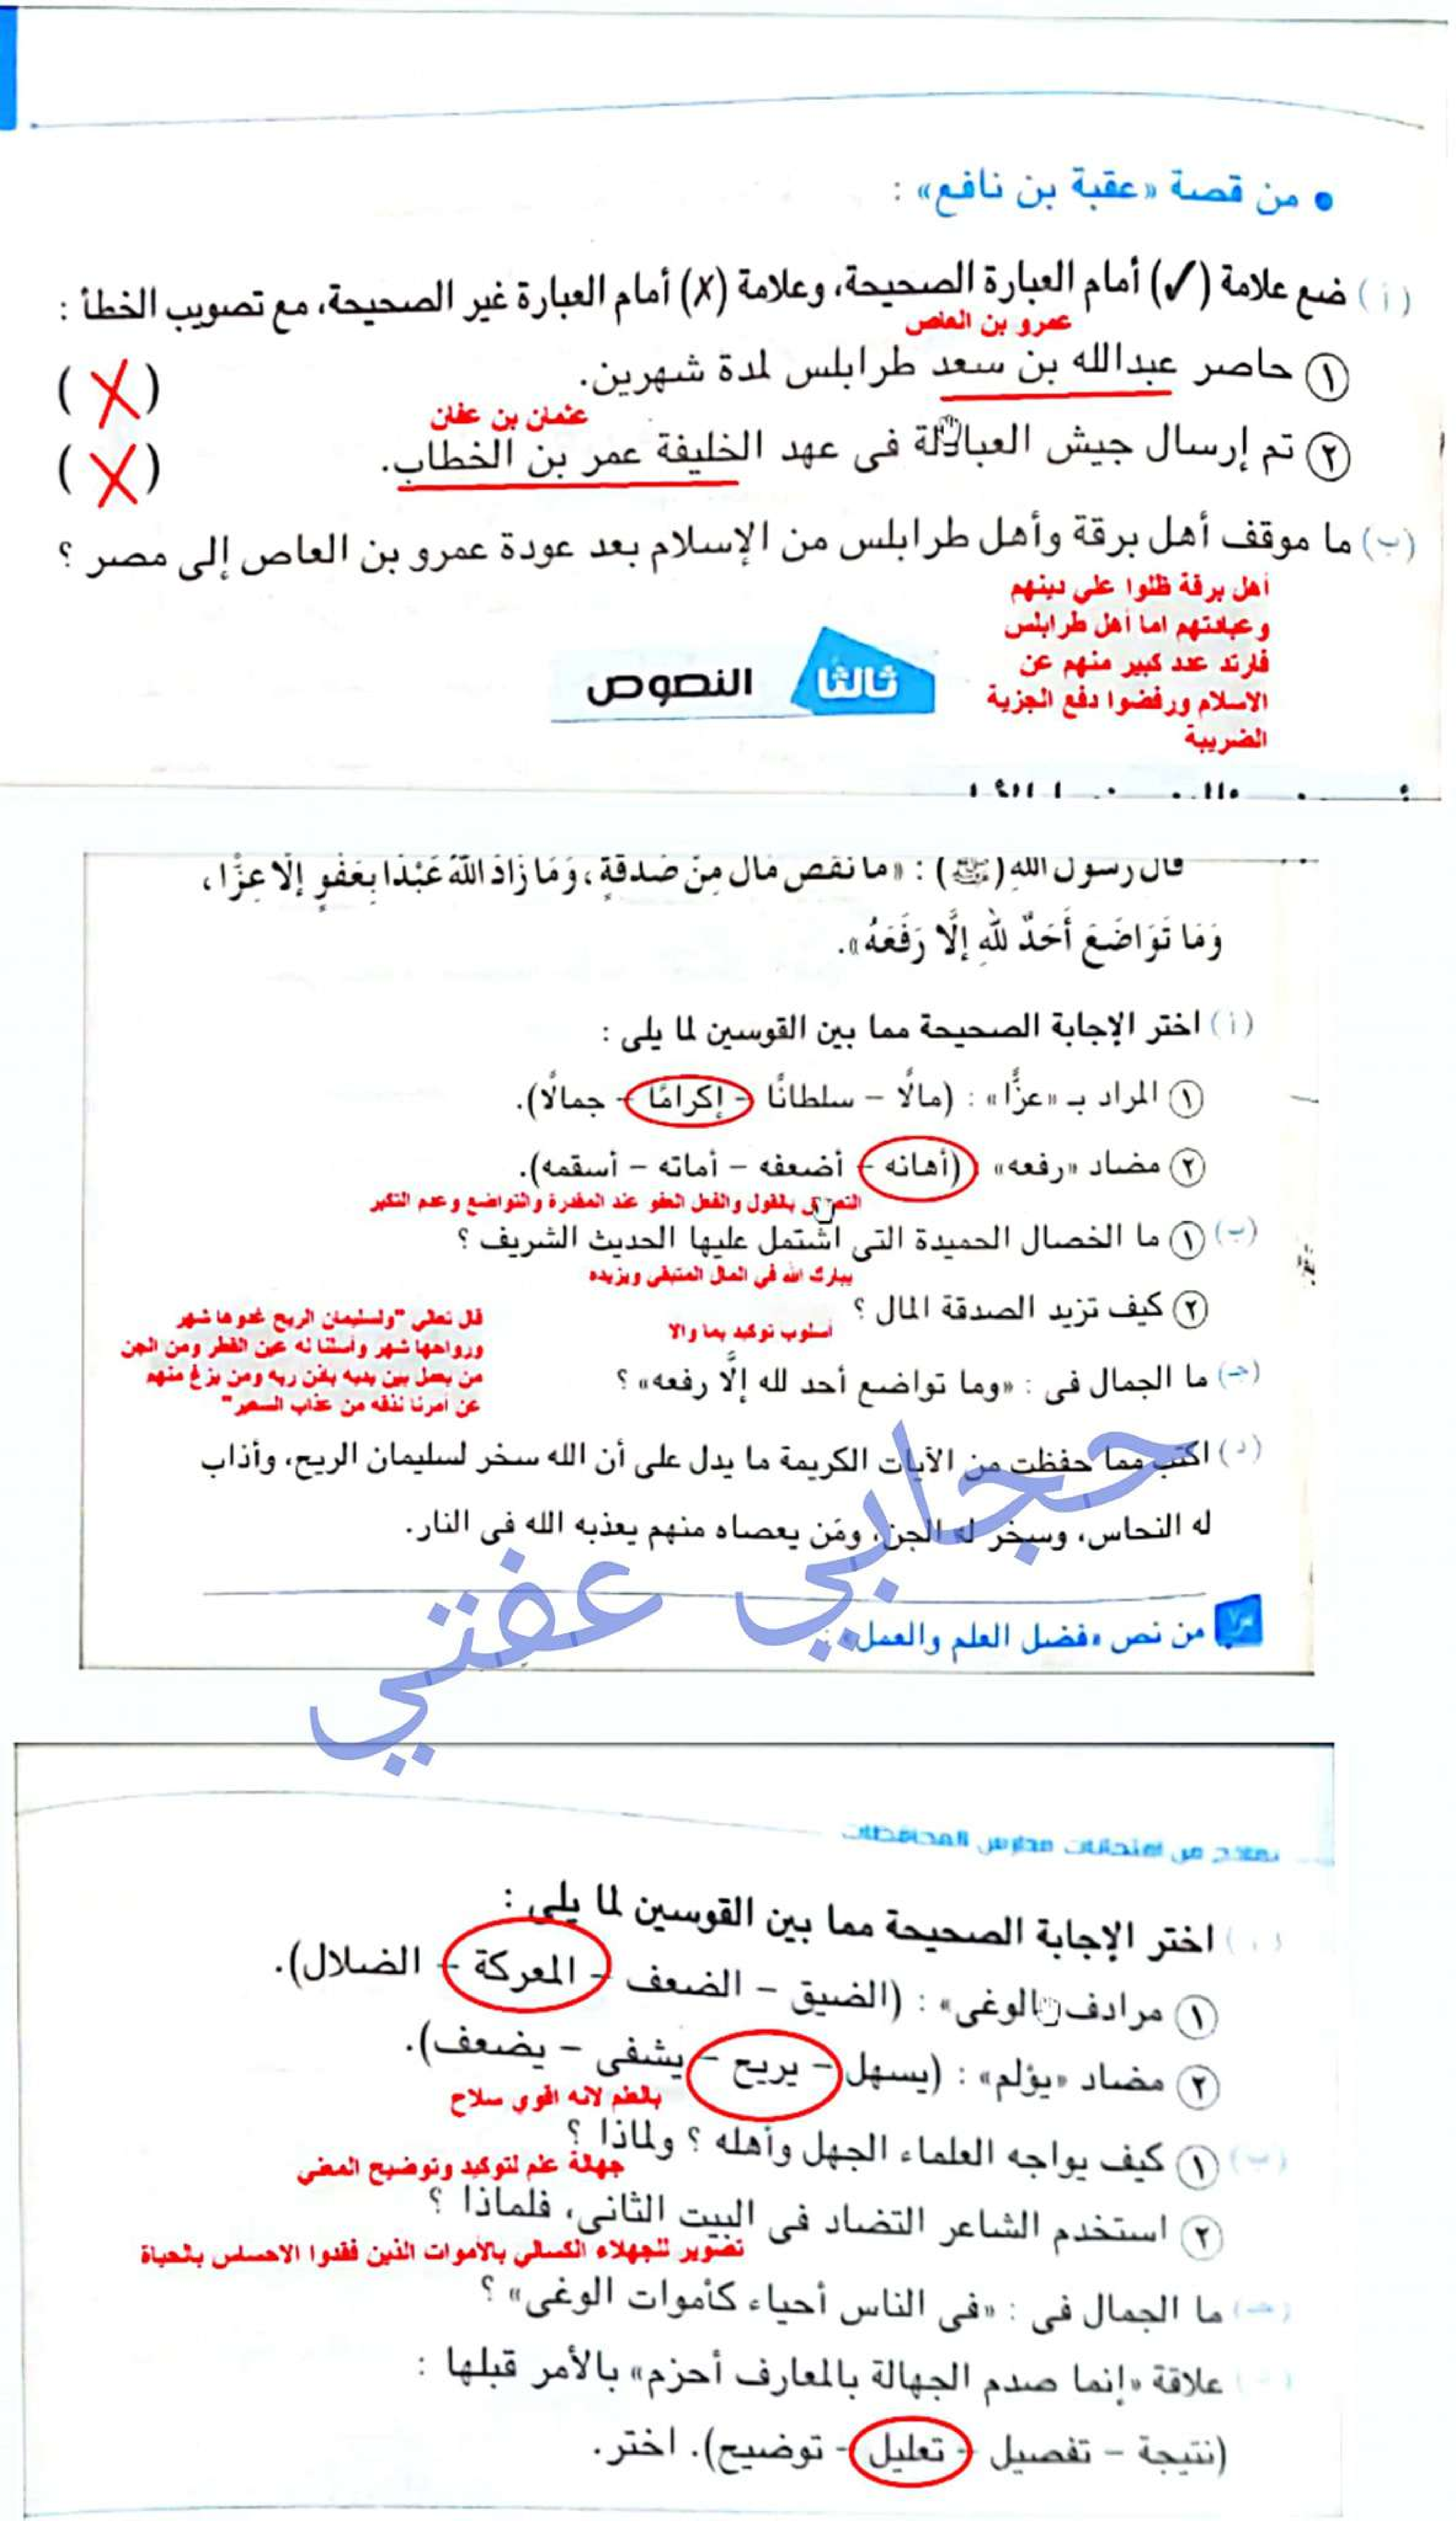 • من قصة «عقبة بن نافع» :
(أ) ضع علامة (✓) أمام العبارة الصحيحة، وعلامة (X) أمام العبارة غير الصحيحة، مع تصويب الخطأ :
عمرو بن العاص
١ حاصر عبدالله بن سعد طرابلس لمدة شهرين. (X)
عثمان بن عفان
٢ تم إرسال جيش العبادلة فى عهد الخليفة عمر بن الخطاب. (X)
(ب) ما موقف أهل برقة وأهل طرابلس من الإسلام بعد عودة عمرو بن العاص إلى مصر ؟
أهل برقة ظلوا على دينهم
وعبادتهم اما أهل طرابلس
فارتد عدد كبير منهم عن
الاسلام ورفضوا دفع الجزية
الضريبة
ثالثا النصوص
قال رسول الله (ﷺ) : «ما نَقَصَ مَالٌ مِنْ صَدَقَةٍ، وَمَا زَادَ اللَّهُ عَبْدًا بِعَفْوٍ إلَّا عِزًّا،
وَمَا تَوَاضَعَ أَحَدٌ للهِ إلَّا رَفَعَهُ».
(أ) اختر الإجابة الصحيحة مما بين القوسين لما يلى :
١ المراد بـ «عزًّا» : (مالًا – سلطانًا – إكرامًا – جمالًا).
٢ مضاد «رفعه» (أهانه – أضعفه – أماته – أسقمه).
بالقول والفعل العفو عند المقدرة والتواضع وعدم التكبر
(ب) ١ ما الخصال الحميدة التى اشتمل عليها الحديث الشريف ؟
يبارك الله في المال المتبقى ويزيده
٢ كيف تزيد الصدقة المال ؟
أسلوب توكيد بما والا
(جـ) ما الجمال فى : «وما تواضع أحد لله إلَّا رفعه» ؟
قال تعالى "ولسليمان الريح غدوها شهر
ورواحها شهر وأسلنا له عين القطر ومن الجن
من يعمل بين يديه بإذن ربه ومن يزغ منهم
عن أمرنا نذقه من عذاب السعير"
(د) اكتب مما حفظت من الآيات الكريمة ما يدل على أن الله سخر لسليمان الريح، وأذاب
له النحاس، وسخر له الجن، ومَن يعصاه منهم يعذبه الله فى النار.
حجابي عفتي
من نص «فضل العلم والعمل» :
نماذج من امتحانات مدارس المحافظات
اختر الإجابة الصحيحة مما بين القوسين لما يلى :
١ مرادف «الوغى» : (الضيق – الضعف – المعركة – الضلال).
٢ مضاد «يؤلم» : (يسهل – يريح – يشفى – يضعف).
بالعلم لانه اقوى سلاح
(ب) ١ كيف يواجه العلماء الجهل وأهله ؟ ولماذا ؟
جهالة علم لتوكيد وتوضيح المعني
٢ استخدم الشاعر التضاد فى البيت الثانى، فلماذا ؟
تصوير للجهلاء الكسالي بالأموات الذين فقدوا الاحساس بالحياة
(جـ) ما الجمال فى : «فى الناس أحياء كأموات الوغى» ؟
علاقة «إنما صدم الجهالة بالمعارف أحزم» بالأمر قبلها :
(نتيجة – تفصيل – تعليل – توضيح). اختر.